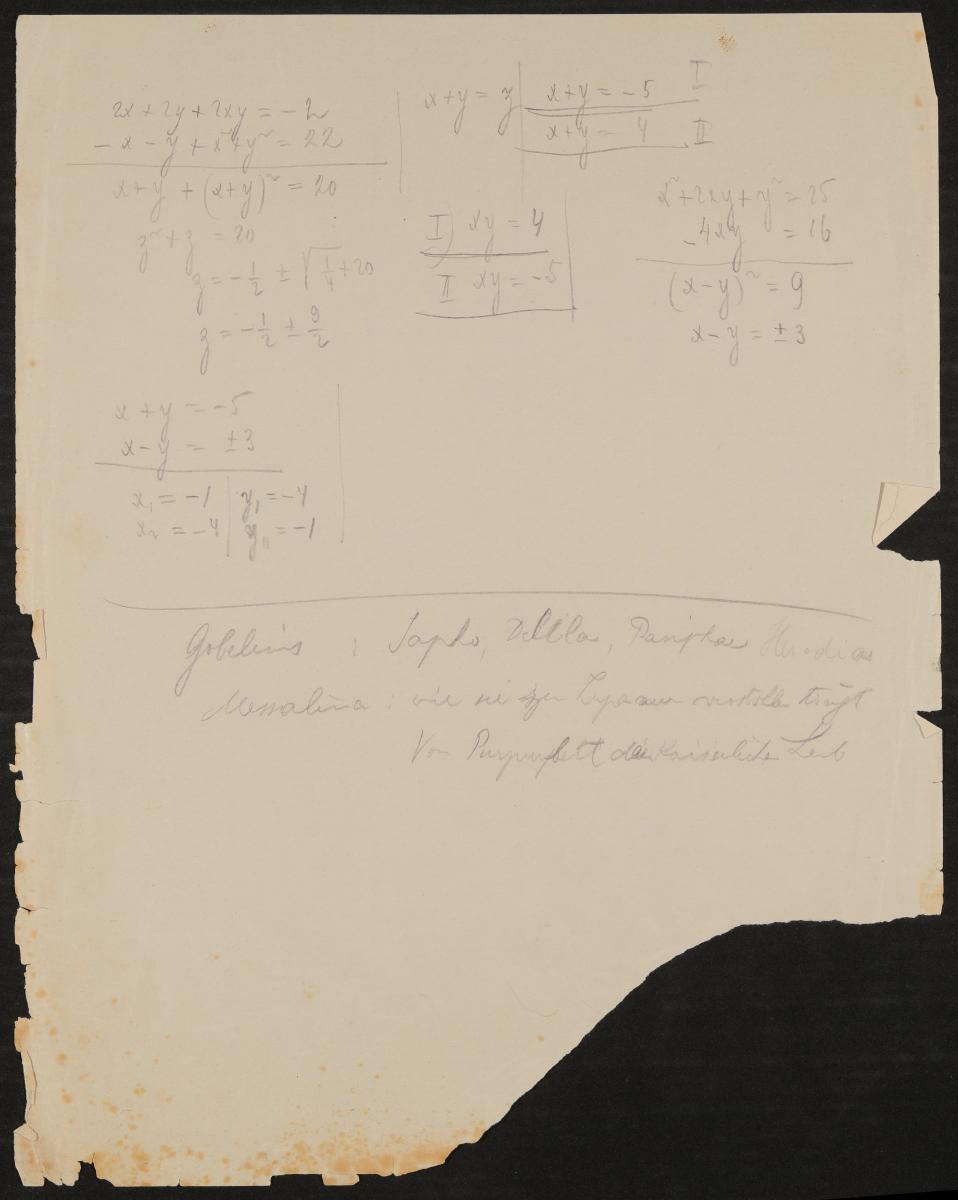 2x + 2y + 2xy = -2
- x - y + x² + y² = 22
x + y + (x+y)² = 20
z² + z = 20
z = - 1/2 ± √(1/4 + 20)
z = - 1/2 ± 9/2
x + y = z
x + y = - 5 I
x + y = 4 II
I) xy = 4
II xy = -5
x² + 2xy + y² = 25
- 4xy = 16
(x - y)² = 9
x - y = ± 3
x + y = - 5
x - y = ± 3
x₁ = - 1 | y₁ = - 4
x₂ = - 4 | y₁₁ = - 1
Gobelins : Sapho, Delila, Pasiphae Herodias
Messalina : wie sie zum trägt
Von Purpurbett Kaiserliche Leib